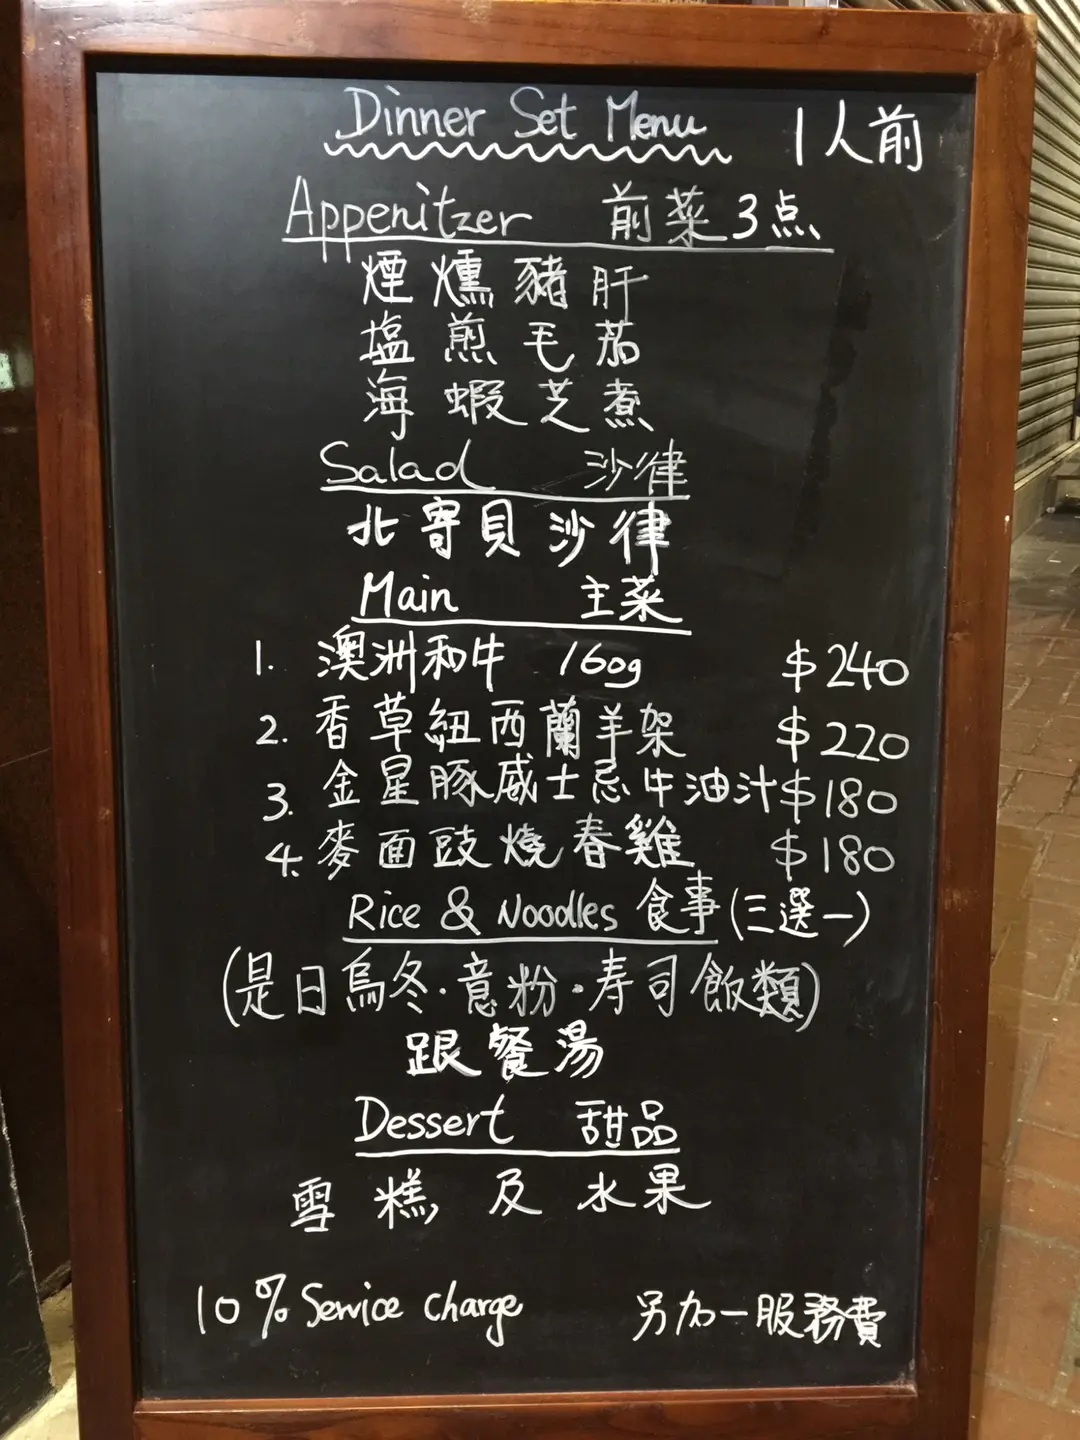 Dinner Set Menu 1人前
Appenitzer 前菜3点
煙燻豬肝
塩煎毛茄
海蝦芝煮
Salad 沙律
北寄貝沙律
Main 主菜
1. 澳洲和牛 160g $240
2. 香草紐西蘭羊架 $220
3. 金星豚威士忌牛油汁 $180
4. 麥面豉燒春雞 $180
Rice & Noodles 食事(三選一)
(是日烏冬·意粉·寿司飯類)
跟餐湯
Dessert 甜品
雪糕及水果
10% Service charge 另加一服務費